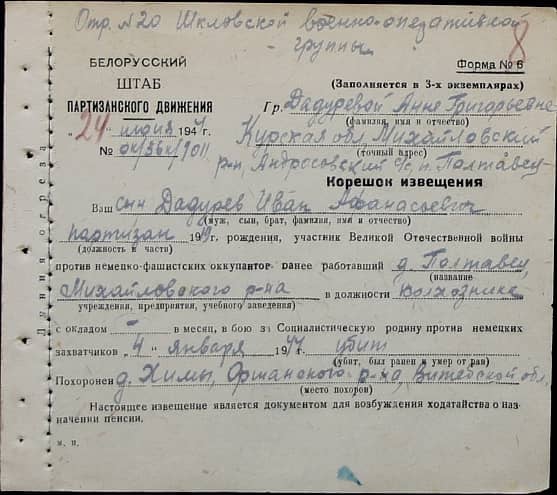 Отр. №20 Шкловской военно-оперативной
группы
8
БЕЛОРУССКИЙ
ШТАБ
ПАРТИЗАНСКОГО ДВИЖЕНИЯ
„24" июня 1944 г.
№
Форма № 6
(Заполняется в 3-х экземплярах)
Гр. Дадуревой Анне Григорьевне
(фамилия, имя и отчество)
Курская обл, Михайловский
(точный адрес)
р-н, Андросовский с/с, п. Полтавец
Корешок извещения
Ваш сын Дадурев Иван Афанасьевич
(муж, сын, брат, фамилия, имя и отчество)
партизан 19 рождения, участник Великой Отечественной войны
(должность в части)
против немецко-фашистских оккупантов ранее работавший д. Полтавец
(название
Михайловского р-на в должности колхозника
учреждения, предприятия, учебного заведения)
с окладом — в месяц, в бою за Социалистическую родину против немецких
захватчиков „4" января 1944 убит
(убит, был ранен и умер от ран)
Похоронен д. Химы, Оршанского р-на, Витебской обл,
(место похорон)
Настоящее извещение является документом для возбуждения ходатайства о наз-
начении пенсии.
М. П.
Линия отреза